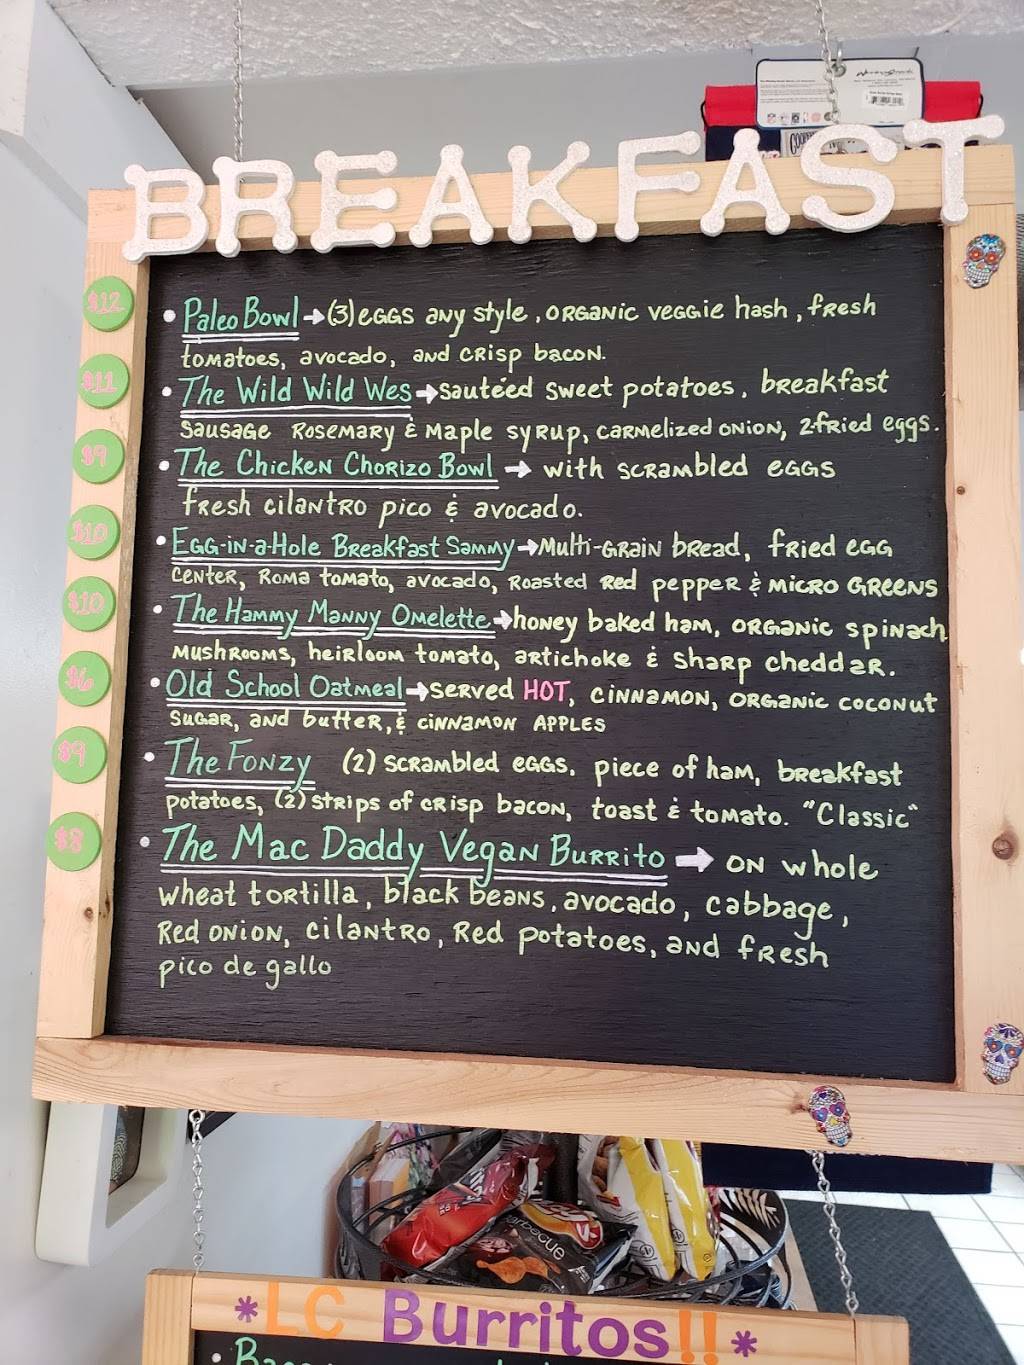 BREAKFAST
$12
• Paleo Bowl → (3) eggs any style, organic veggie hash, fresh
tomatoes, avocado, and crisp bacon.
$11
• The Wild Wild Wes → sautéed sweet potatoes, breakfast
sausage rosemary & maple syrup, carmelized onion, 2 fried eggs.
$9
• The Chicken Chorizo Bowl → with scrambled eggs
fresh cilantro pico & avocado.
$10
• Egg-in-a-Hole Breakfast Sammy → Multi-grain bread, fried egg
center, Roma tomato, avocado, roasted red pepper & micro greens
$10
• The Hammy Manny Omelette → honey baked ham, organic spinach
mushrooms, heirloom tomato, artichoke & sharp cheddar.
$6
• Old School Oatmeal → served HOT, cinnamon, organic coconut
sugar, and butter, & cinnamon apples
$9
• The Fonzy (2) scrambled eggs. piece of ham, breakfast
potatoes, (2) strips of crisp bacon, toast & tomato. "Classic"
$8
• The Mac Daddy Vegan Burrito → on whole
wheat tortilla, black beans, avocado, cabbage,
Red onion, cilantro, Red potatoes, and fresh
pico de gallo
barbecue
*LC Burritos!!*